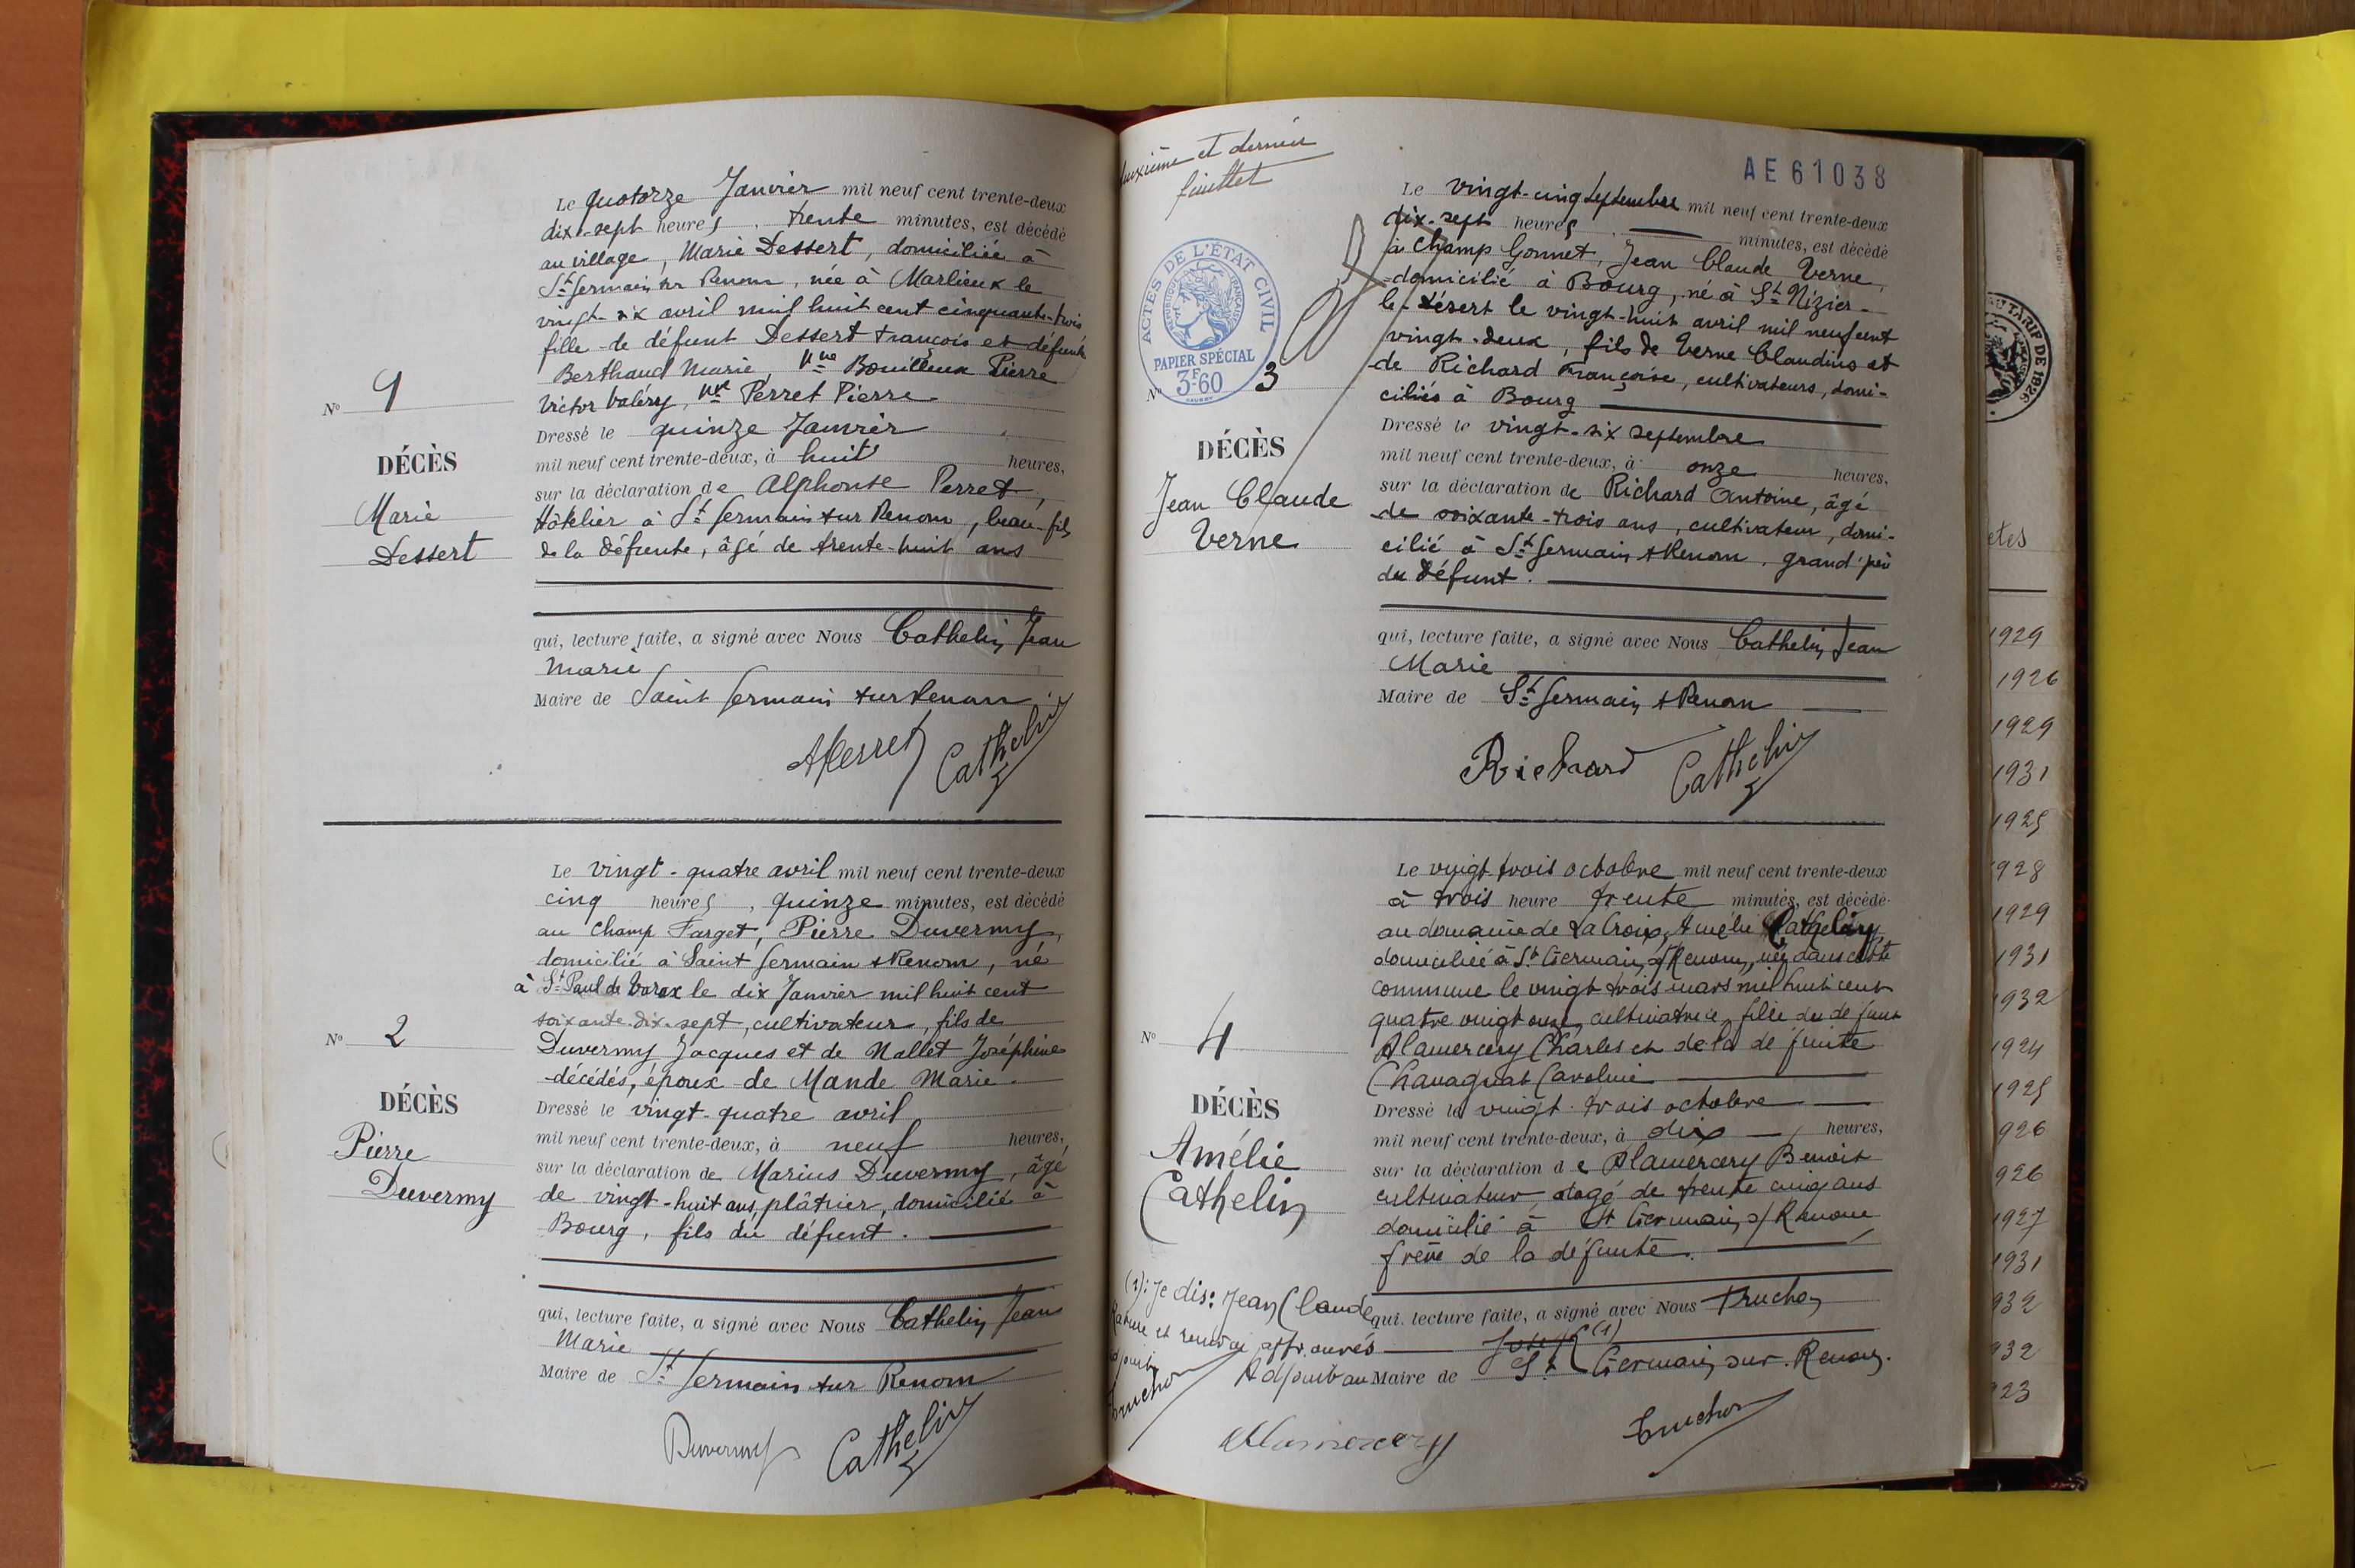 Le quatorze Janvier mil neuf cent trente-deux
dix-sept heures, trente minutes, est décédé
au village, Marie Dessert, domiciliée à
St Germain sur Renom, née à Marlieux le
vingt six avril mil huit cent cinquante-trois
fille de défunt Dessert François et défunte
Berthaud Marie, Vve Bouilleux Pierre
Victor Valéry, Vve Perret Pierre
N° 1
Dressé le quinze Janvier
DÉCÈS
mil neuf cent trente-deux, à huit heures,
sur la déclaration de Alphonse Perret,
Marie
Hôtelier à St Germain sur Renom, beau-fils
Dessert
de la défunte, âgé de trente-huit ans
qui, lecture faite, a signé avec Nous Cathelin Jean
Marie
Maire de Saint Germain sur Renom
APerret Cathelin
Le vingt-quatre avril mil neuf cent trente-deux
cinq heures, quinze minutes, est décédé
au Champ Farget, Pierre Duvermy,
domicilié à Saint Germain s Renom, né
à St Paul de Varax le dix Janvier mil huit cent
soixante-dix-sept, cultivateur, fils de
N° 2
Duvermy Jacques et de Nallet Joséphine
décédés, époux de Mande Marie.
DÉCÈS
Dressé le vingt-quatre avril
mil neuf cent trente-deux, à neuf heures,
Pierre
sur la déclaration de Marius Duvermy, âgé
Duvermy
de vingt-huit ans, plâtrier, domicilié à
Bourg, fils du défunt.
qui, lecture faite, a signé avec Nous Cathelin Jean
Marie
Maire de St Germain sur Renom
Duvermy Cathelin
deuxième et dernier
feuillet
AE 61038
Le vingt-cinq septembre mil neuf cent trente-deux
dix-sept heures, minutes, est décédé
à Champ Gonnet, Jean Claude Verne,
domicilié à Bourg, né à St Nizier-
le-Désert le vingt-huit avril mil neuf cent
vingt-deux, fils de Verne Claudius et
de Richard Françoise, cultivateurs, domi-
ciliés à Bourg
ACTES DE L'ÉTAT CIVIL
RÉPUBLIQUE FRANÇAISE
PAPIER SPÉCIAL
3F60
N° 3
DÉCÈS
Dressé le vingt-six septembre
mil neuf cent trente-deux, à onze heures,
Jean Claude
sur la déclaration de Richard Antoine, âgé
Verne
de soixante-trois ans, cultivateur, domi-
cilié à St Germain s Renom, grand'père
du défunt.
qui, lecture faite, a signé avec Nous Cathelin Jean
Marie
Maire de St Germain s Renom
Richard Cathelin
Le vingt trois octobre mil neuf cent trente-deux
à trois heure trente minutes, est décédé
au domaine de La Croix, Amélie Cathelin,
domiciliée à St Germain s/Renom, née dans cette
commune le vingt trois mars mil huit cent
quatre vingt onze, cultivatrice, fille du défunt
N° 4
Alamercery Charles et de la défunte
Chavagnat Caroline
DÉCÈS
Dressé le vingt-trois octobre
mil neuf cent trente-deux, à dix heures,
Amélie
sur la déclaration de Alamercery Benoit
Cathelin
cultivateur, âgé de trente cinq ans
domicilié à St Germain s/Renom
frère de la défunte.
(1): Je dis: Jean Claude
Rature et renvoi approuvés
adjoint
Truchon
qui, lecture faite, a signé avec Nous Truchon
Joseph (1)
Adjoint au Maire de St Germain sur Renom.
Alamercery Truchon
TARIF DE 1926
1929
1926
1929
1931
1925
1928
1929
1931
1932
1924
1925
926
926
1927
1931
932
932
923